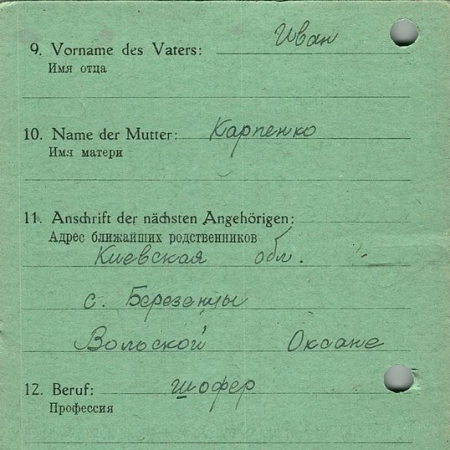 9. Vorname des Vaters: Иван
Имя отца
10. Name der Mutter: Карпенко
Имя матери
11. Anschrift der nächsten Angehörigen:
Адрес ближайших родственников
Киевская обл.
с. Березенцы
Вольской Оксане
12. Beruf: шофер
Профессия